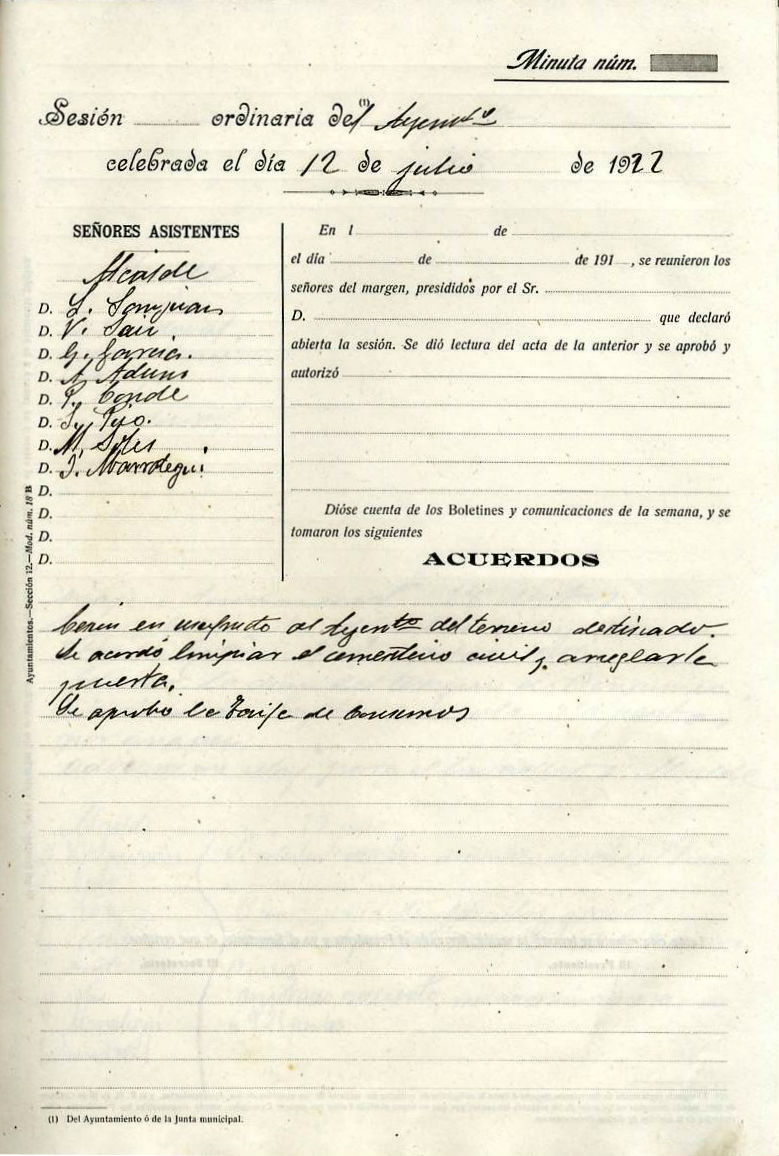 Minuta núm.
Sesión ordinaria del (1) Ayuntº
celebrada el día 12 de julio de 1922
SEÑORES ASISTENTES
Alcalde
D. S. Sanjuan
D. V. Saiz.
D. G. Garcia.
D. A.
D. P. Conde
D. S. Pijo.
D. M. Soles
D. J. Marrotegui
D.
D.
D.
D.
En l de
el día de de 191 , se reunieron los
señores del margen, presididos por el Sr.
D. que declaró
abierta la sesión. Se dió lectura del acta de la anterior y se aprobó y
autorizó
Dióse cuenta de los Boletines y comunicaciones de la semana, y se
tomaron los siguientes
ACUERDOS
en usufructo al Ayuntto del terreno destinado.
Se acordó limpiar el cementerio civil y arreglar la
puerta.
Se aprobó la Tarifa de Consumos
Ayuntamientos.—Sección 12.—Mod. núm. 18 B
(1) Del Ayuntamiento ó de la Junta municipal.